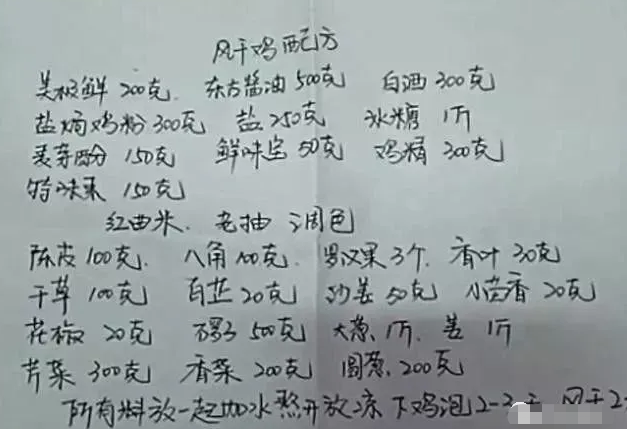 风干鸡配方
美极鲜 200克. 东方酱油 500克 白酒 300克
盐焗鸡粉 300克 盐 250克 冰糖 1斤
麦芽酚 150克 鲜味宝 50克 鸡精 300克
特味素 150克
红曲米、老抽 调色
陈皮 100克. 八角 100克. 罗汉果 3个. 香叶 30克
干草 100克 白芷 20克 沙姜 50克 小茴香 20克
花椒 20克 500克 大葱. 1斤. 姜 1斤
芹菜 300克 香菜 200克 圆葱. 200克
所有料放一起加水熬开放凉 下鸡泡 2-3天 风干2